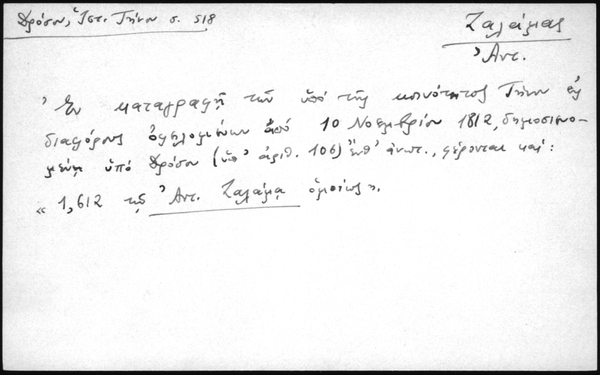 Δρόσου, Ἱστ. Τήνου σ. 518
Ζαλάμας
Ἀντ.
Ἐν καταγραφῇ τῶν ὑπὸ τῆς κοινότητος Τήνου εἰς
διαφόρους ὀφειλομένων ἀπὸ 10 Νοεμβρίου 1812, δημοσιευο-
μένῃ ὑπὸ Δρόσου (ὑπ' ἀριθ. 106) ἔνθ' ἀνωτ., φέρονται καί:
« 1,612 τῷ Ἀντ. Ζαλάμᾳ ὁμοίως ».